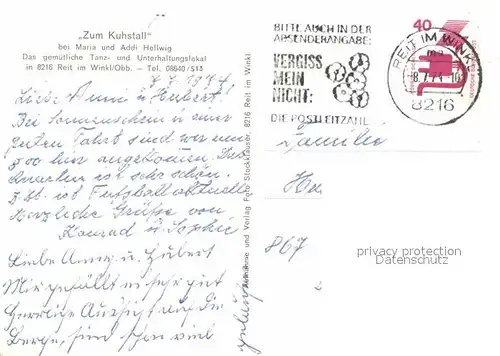 „Zum Kuhstall"
bei Maria und Addi Hellwig
Das gemütliche Tanz- und Unterhaltungslokal
in 8216 Reit im Winkl/Obb. – Tel. 08640/513
7.7.1974
Liebe Anni u. Hubert!
Bei Sonnenschein u. einer
guten Fahrt sind wir um
hier angekommen. Das
ist sehr schön.
z. Zt. ist Fußball aktuell.
Herzliche Grüße von
Konrad u. Sophie
Liebe Anny u. Hubert
Mir gefällt es sehr gut
Herrliche Aussicht auf die
Berge, sind schon viel
gelaufen
Aufnahme und Verlag Foto Stockklauser, 8216 Reit im Winkl
BITTE AUCH IN DER
ABSENDERANGABE:
VERGISS
MEIN
NICHT:
DIE POSTLEITZAHL
40
REIT IM WINKL
8.7.74-10
8216
Familie
He
867
privacy protection
Datenschutz